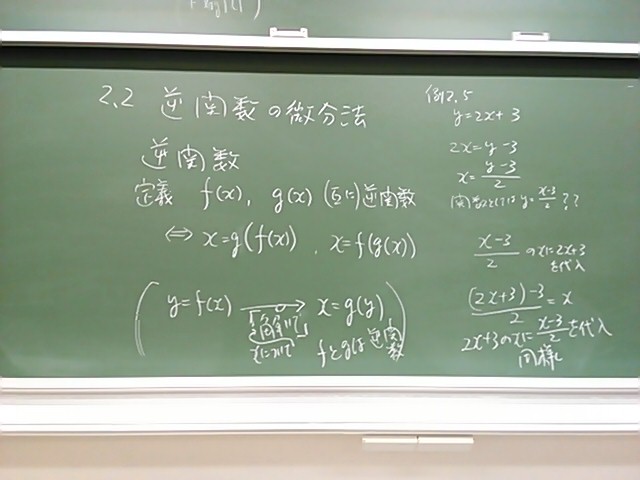 2.2 逆関数の微分法
逆関数
定義 f(x), g(x) (互いに)逆関数
⇔ x=g(f(x)) , x=f(g(x))
y=f(x) → x=g(y)
「解いて」
xについて
fとgは逆関数
例2.5
y=2x+3
2x=y-3
x=\frac{y-3}{2}
関数としては y=\frac{x-3}{2}??
\frac{x-3}{2} のxに2x+3
を代入
\frac{(2x+3)-3}{2}=x
2x+3のxに\frac{x-3}{2}を代入
同様